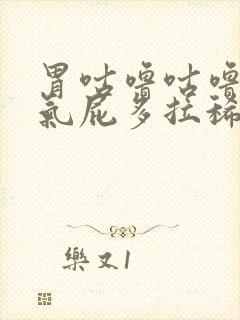 胃咕嚕咕嚕
氣屁多拉稀
樂又1